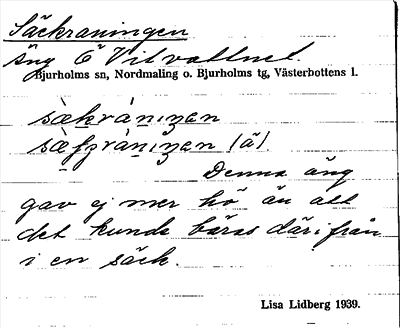 Säckraningen
äng Ö Vitvattnet.
Bjurholms sn, Nordmaling o. Bjurholms tg, Västerbottens l.
sàkràniŋen
(ä).
Denna äng
gav ej mer hö än att
det kunde bäras därifrån
i en säck.
Lisa Lidberg 1939.